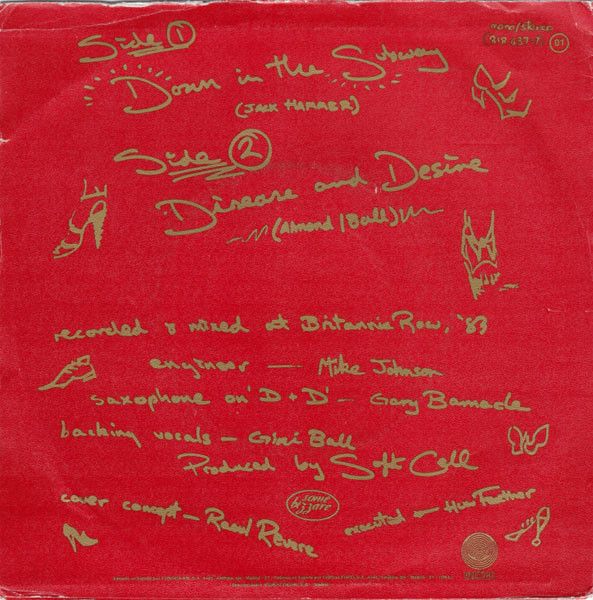 Side 1
mono/stereo
818 437-7 01
Down in the Subway
(JACK HAMMER)
Side 2
Disease and Desire
(Almond / Ball)
recorded & mixed at Britannia Row, '83
engineer — Mike Johnson
saxophone on 'D + D' — Gary Barnacle
backing vocals — Gini Ball
Produced by Soft Cell
some bizzare
cover concept — 
executed — Huw Feather